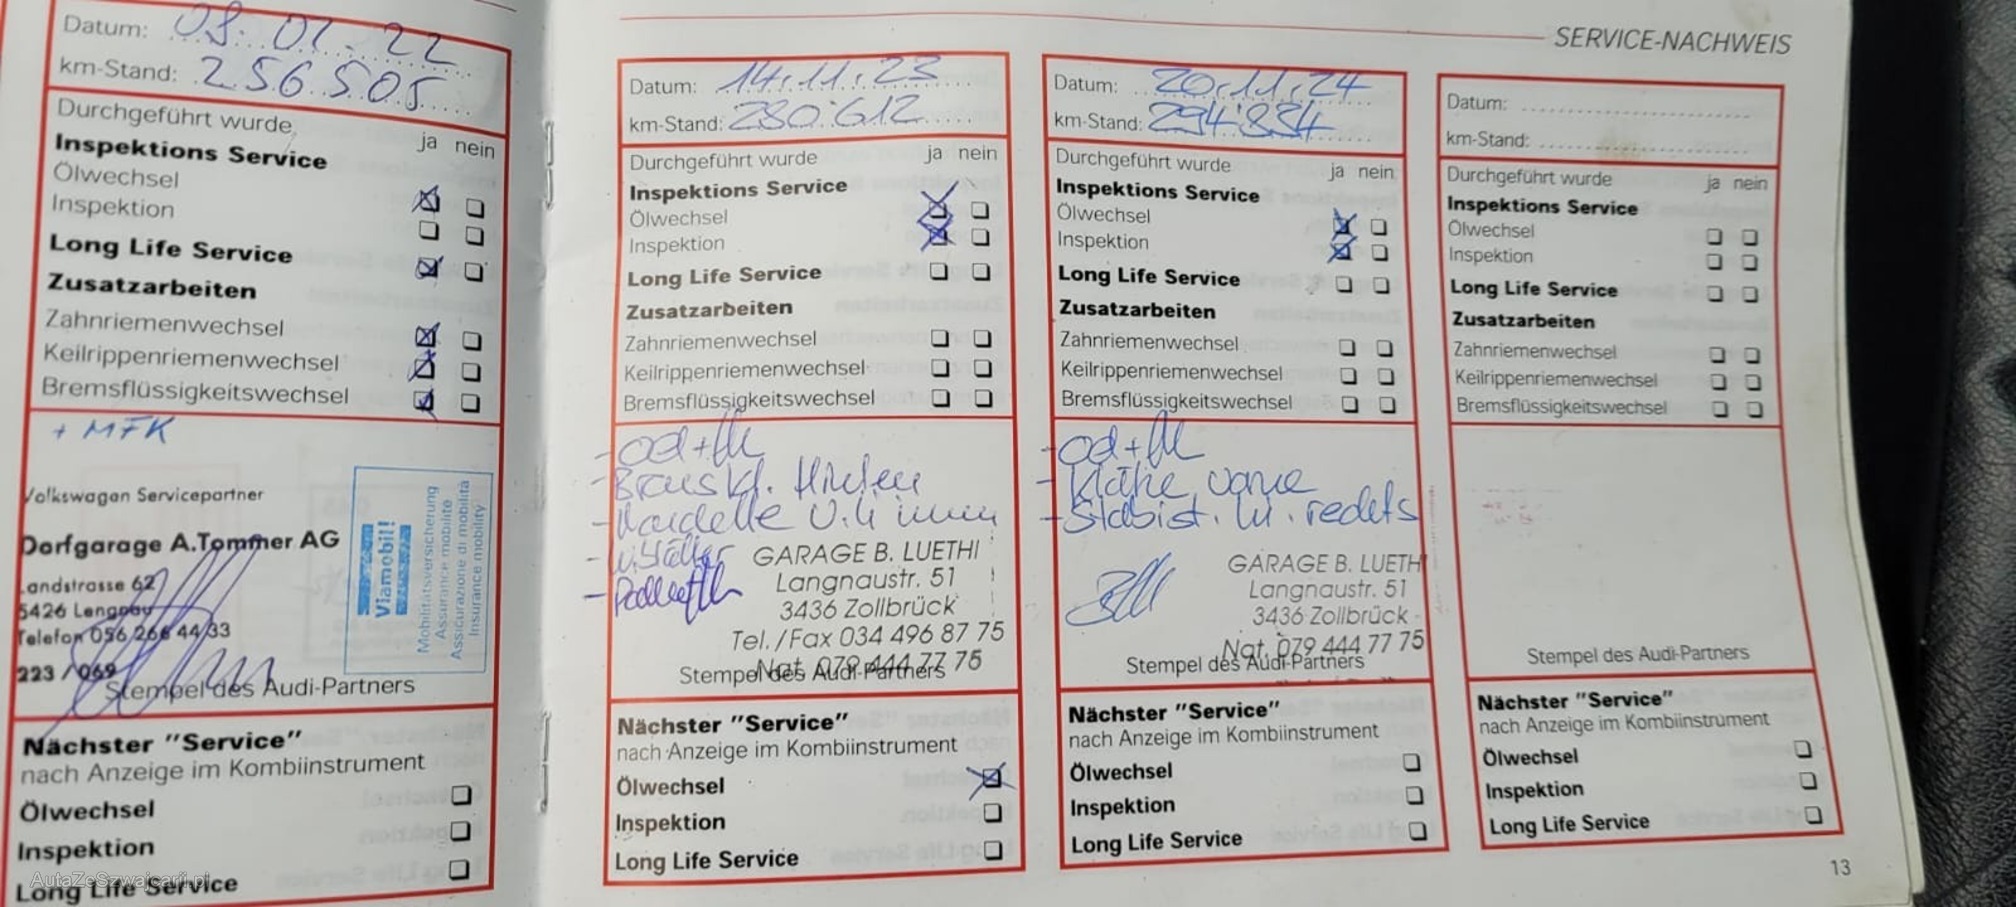 SERVICE-NACHWEIS
Datum: 08.07.22
km-Stand: 256505
Durchgeführt wurde
ja nein
Inspektions Service
Ölwechsel
Inspektion
Long Life Service
Zusatzarbeiten
Zahnriemenwechsel
Keilrippenriemenwechsel
Bremsflüssigkeitswechsel
+ MFK
Volkswagen Servicepartner
Dorfgarage A.Tommer AG
Landstrasse 62
5426 Lengnau
Telefon 056 266 44 33
223 / 069
Viamobil!
Mobilitätsversicherung
Assurance mobilité
Assicurazione di mobilità
Insurance mobility
Stempel des Audi-Partners
Nächster "Service"
nach Anzeige im Kombiinstrument
Ölwechsel
Inspektion
Long Life Service
Datum: 14.11.23
km-Stand: 280'612
Durchgeführt wurde ja nein
Inspektions Service
Ölwechsel
Inspektion
Long Life Service
Zusatzarbeiten
Zahnriemenwechsel
Keilrippenriemenwechsel
Bremsflüssigkeitswechsel
GARAGE B. LUETHI
Langnaustr. 51
3436 Zollbrück
Tel./Fax 034 496 87 75
Nat. 079 444 77 75
Stempel des Audi-Partners
Nächster "Service"
nach Anzeige im Kombiinstrument
Ölwechsel
Inspektion
Long Life Service
Datum: 20.11.24
km-Stand: 294'884
Durchgeführt wurde ja nein
Inspektions Service
Ölwechsel
Inspektion
Long Life Service
Zusatzarbeiten
Zahnriemenwechsel
Keilrippenriemenwechsel
Bremsflüssigkeitswechsel
GARAGE B. LUETHI
Langnaustr. 51
3436 Zollbrück
Nat. 079 444 77 75
Stempel des Audi-Partners
Nächster "Service"
nach Anzeige im Kombiinstrument
Ölwechsel
Inspektion
Long Life Service
Datum:
km-Stand:
Durchgeführt wurde ja nein
Inspektions Service
Ölwechsel
Inspektion
Long Life Service
Zusatzarbeiten
Zahnriemenwechsel
Keilrippenriemenwechsel
Bremsflüssigkeitswechsel
Stempel des Audi-Partners
Nächster "Service"
nach Anzeige im Kombiinstrument
Ölwechsel
Inspektion
Long Life Service
13
AutaZeSzwajcarii.pl